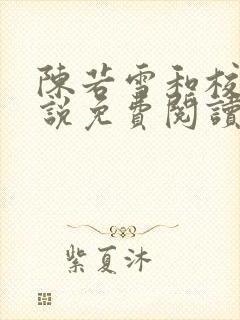 陳若雪和校
説免費閱讀
紫夏沐